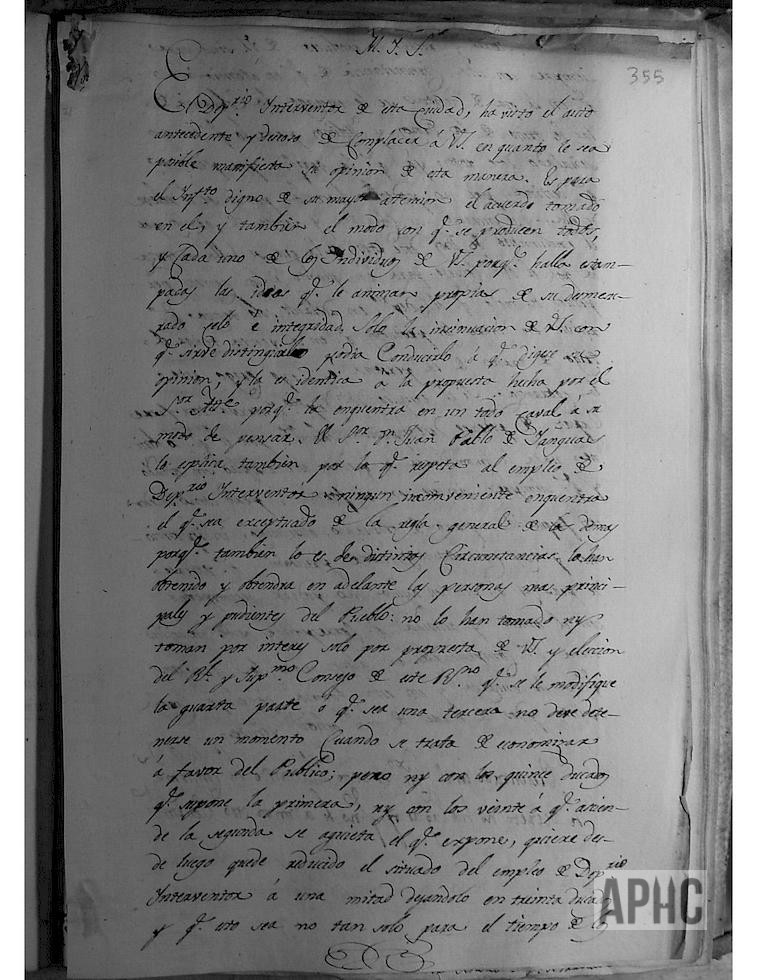 M. I. S.
355
El Dep.rio Interventor de esta Ciudad, ha visto el auto
antecedente y deseoso de Complacer á VS. en quanto le sea
pasible manifiesta su opinion de esta manera. Es para
el Inf.to digno de su mayor atencion el acuerdo tomado
en el, y tambien el modo con q.e se producen todos,
y Cada uno de los Individuos de VS. porq.e halla estam-
padas las ideas q.e le animan propias de su esmer-
rado zelo é integridad. Solo la insinuacion de VS. con
q.e sirve distinguirlo podia Conducirlo à q.e digue su
opinion, y la es identica a la propuesta hecha por el
S.or porq.e la enquentra en un todo caval à su
modo de pensar. El S.or D.n Juan Pablo de Tanguas
lo esplica tambien por lo q.e respeta al empleo de
Dep.rio Interventor ningun inconveniente enquentra
el q.e sea exceptuado de la regla general de los demas
porq.e tambien lo es de distintas Circunstancias. lo han
obtenido y obtendra en adelante las personas mas princi-
pales y pudientes del Pueblo: no lo han tomado ny
toman por interes solo por propuesta de VS. y eleccion
del R.l y Sup.mo Consejo de este R.no q.e se le modifique
la quarta parte ó q.e sea una tercera no deve dete-
nerse un momento Cuando se trata de economizar
á favor del Publico; pero ny con los quince ducados
q.e supone la primera, ny con los veinte á q.e ascien-
de la segunda se aquieta el q.e expone, quiere des-
de luego quede reducido el situado del empleo de Dep.rio
Interventor á una mitad dejandolo en treinta ducados
y q.e esto sea no tan solo para el tiempo de lo
APHC